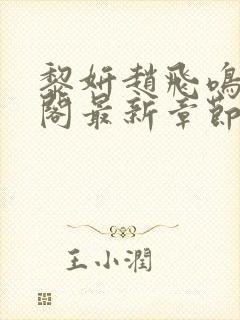 黎妍趙飛鳴
閣最新章節
王小潤